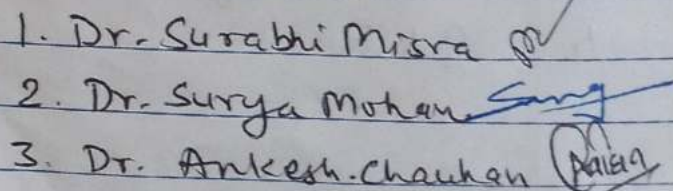 1. Dr. Surabhi Misra
2. Dr. Surya Mohan
3. Dr. Ankesh. Chauhan